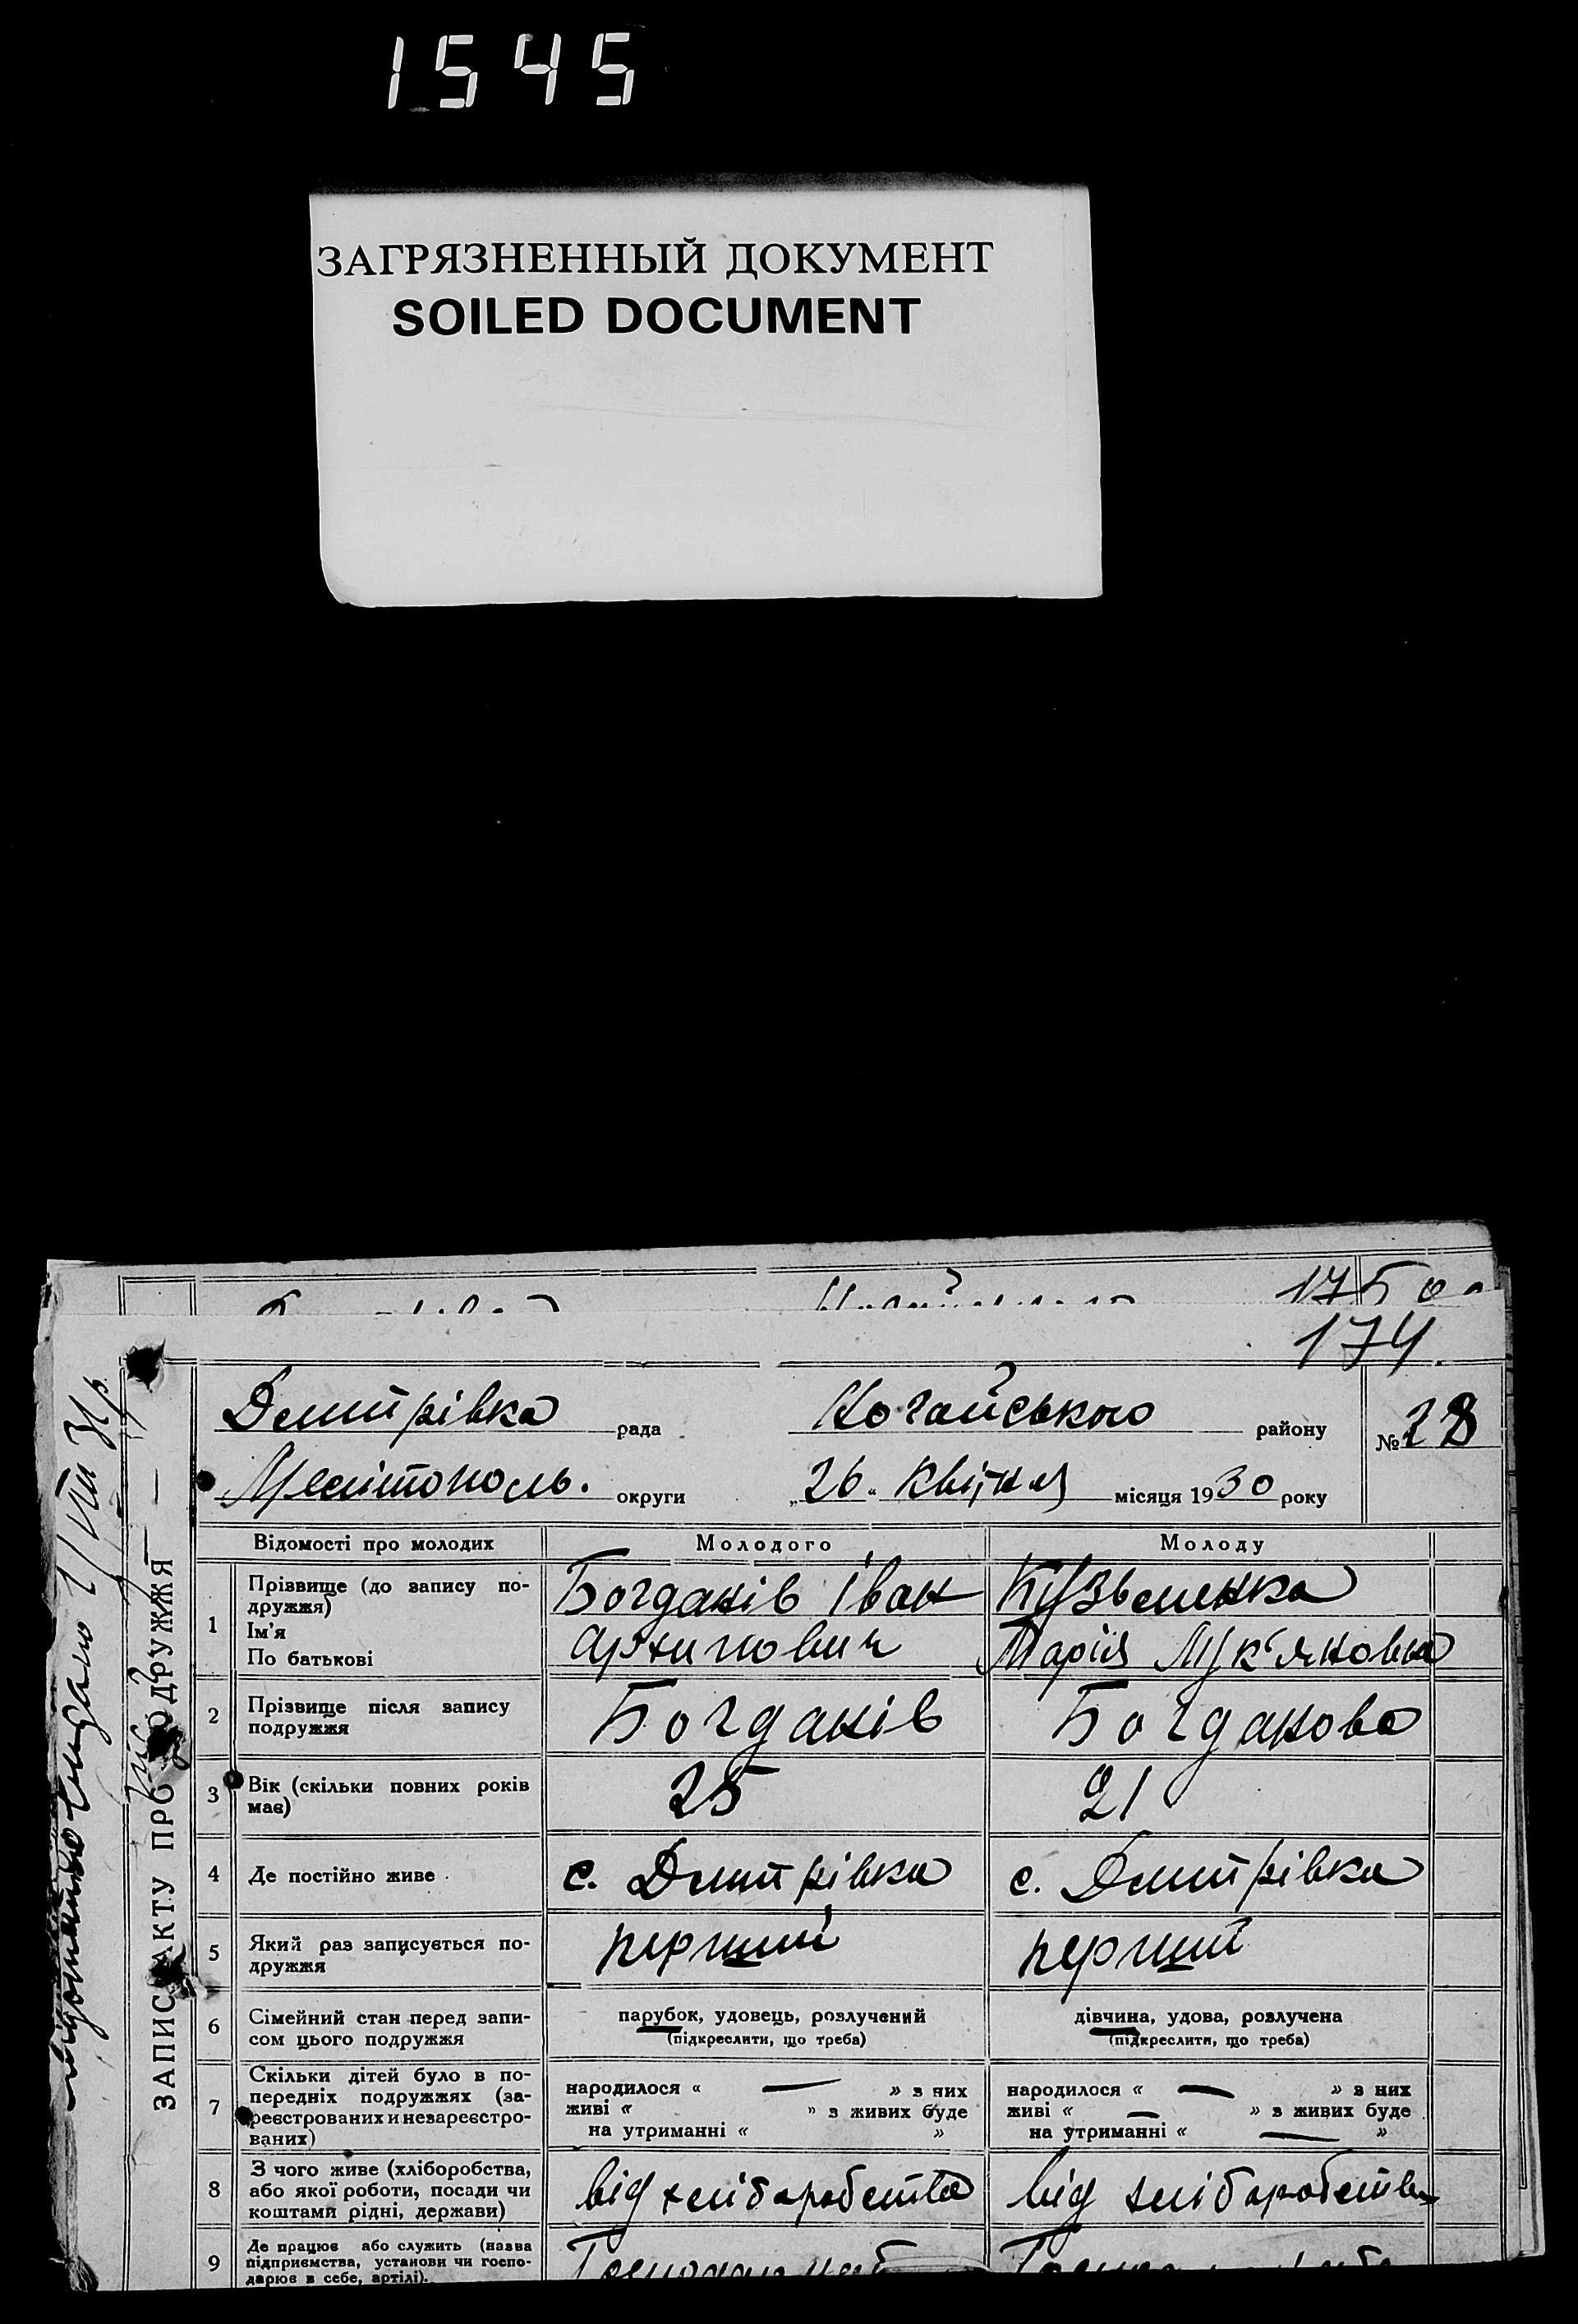 1545
ЗАГРЯЗНЕННЫЙ ДОКУМЕНТ
SOILED DOCUMENT
175
174.
Дмитрівка рада Ногайського району №28
Мелітополь. округи „26" квітня місяця 1930 року
ЗАПИС АКТУ ПРО ПОДРУЖЖЯ
Відомості про молодих Молодого Молоду
1 Прізвище (до запису по-
дружжя)
Ім'я
По батькові
Богданів Іван
Архипович
Кузьменкко
Марія Лук'яновна
2 Прізвище після запису
подружжя
Богданів Богданова
3 Вік (скільки повних років
має)
25 21
4 Де постійно живе
с. Дмитрівка с. Дмитрівка
5 Який раз записується по-
дружжя
перший перший
6 Сімейний стан перед запи-
сом цього подружжя
парубок, удовець, розлучений
(підкреслити, що треба)
дівчина, удова, розлучена
(підкреслити, що треба)
7 Скільки дітей було в по-
передніх подружжях (за-
реєстрованих и незареєстро-
ваних)
народилося « — » з них
живі « » з живих буде
на утриманні « »
народилося « — » з них
живі « — » з живих буде
на утриманні « — »
8 З чого живе (хліборобства,
або якої роботи, посади чи
коштами рідні, держави)
від хліборобства від хліборобства
9 Де працює або служить (назва
підприємства, установи чи госпо-
дарює в себе, артілі).